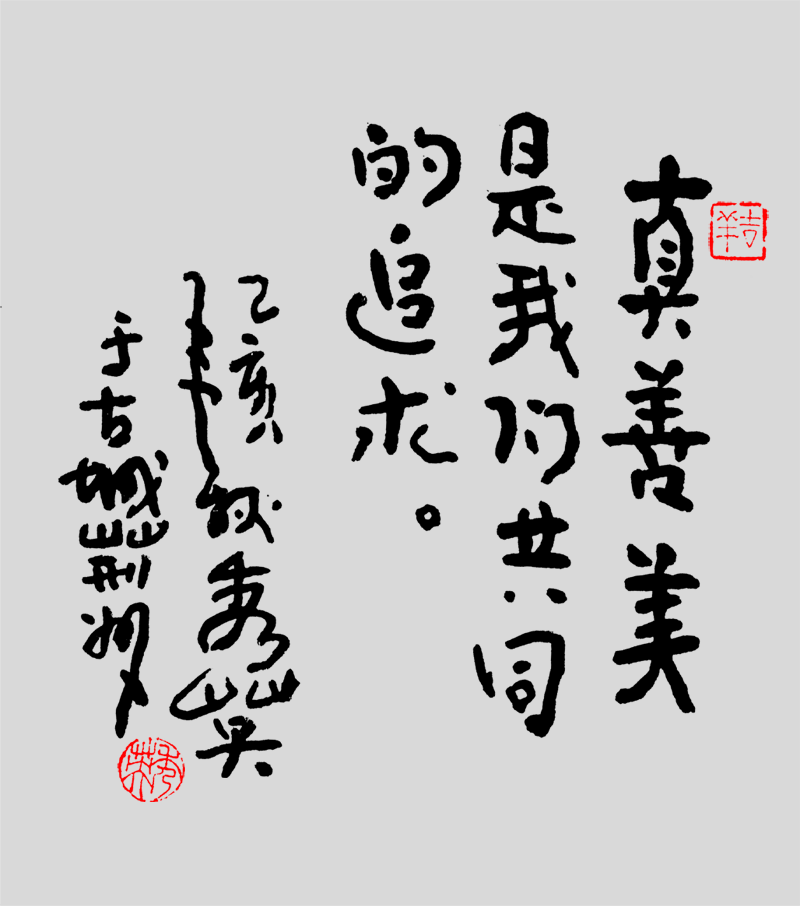 真善美
是我们共同
的追求。
乙亥年秋秀英
于古城荆州
吉羊
秀英